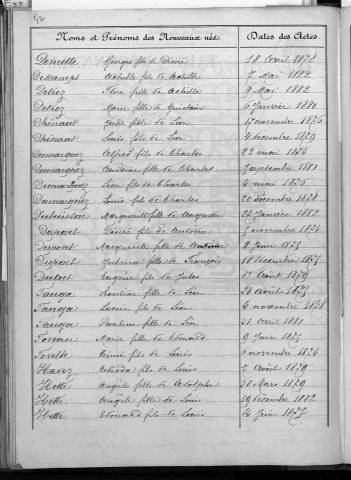 52
Noms et Prénoms des Nouveaux nés. Dates des Actes.
Demette Georges fils de Désiré 18 Avril 1878
Descamps Achille fils de Achille 7 Mai 1882
Detrez Flore fille de Achille 9 Mai 1882
Detrez Marie fille de Ghislain 6 Janvier 1880
Dhénaut Julie fille de Léon 17 novembre 1876
Dhénaut Louis fils de Léon 4 décembre 1879
Dumarquez Alfred fils de Charles 23 mai 1874
Dumarquez fille de Charles 7 septembre 1881
Dumarquez Léon fils de Charles 6 mai 1876
Dumarquez Louis fils de Charles 20 décembre 1878
Marguerite fille de Augustin 27 Janvier 1882
Dupont Désiré fils de Antoine 5 novembre 1874
Dupont Marguerite fille de Antoine 8 Juin 1875
Dupont fille de François 18 décembre 1875
Dutoit Eugène fils de Jules 1er Août 1879
Léontine fille de Léon 28 Août 1875
Lucien fils de Léon 4 novembre 1878
fille de Léon 21 Avril 1881
Marie fille de Edouard 9 Juin 1875
fils de Louis 6 novembre 1874
Havez fils de Louis 7 Août 1879
Hette Angèle fille de Adolphe 28 Mars 1879
Hette Angèle fille de Louis 19 décembre 1882
Hette Edouard fils de Louis 14 Juin 1877